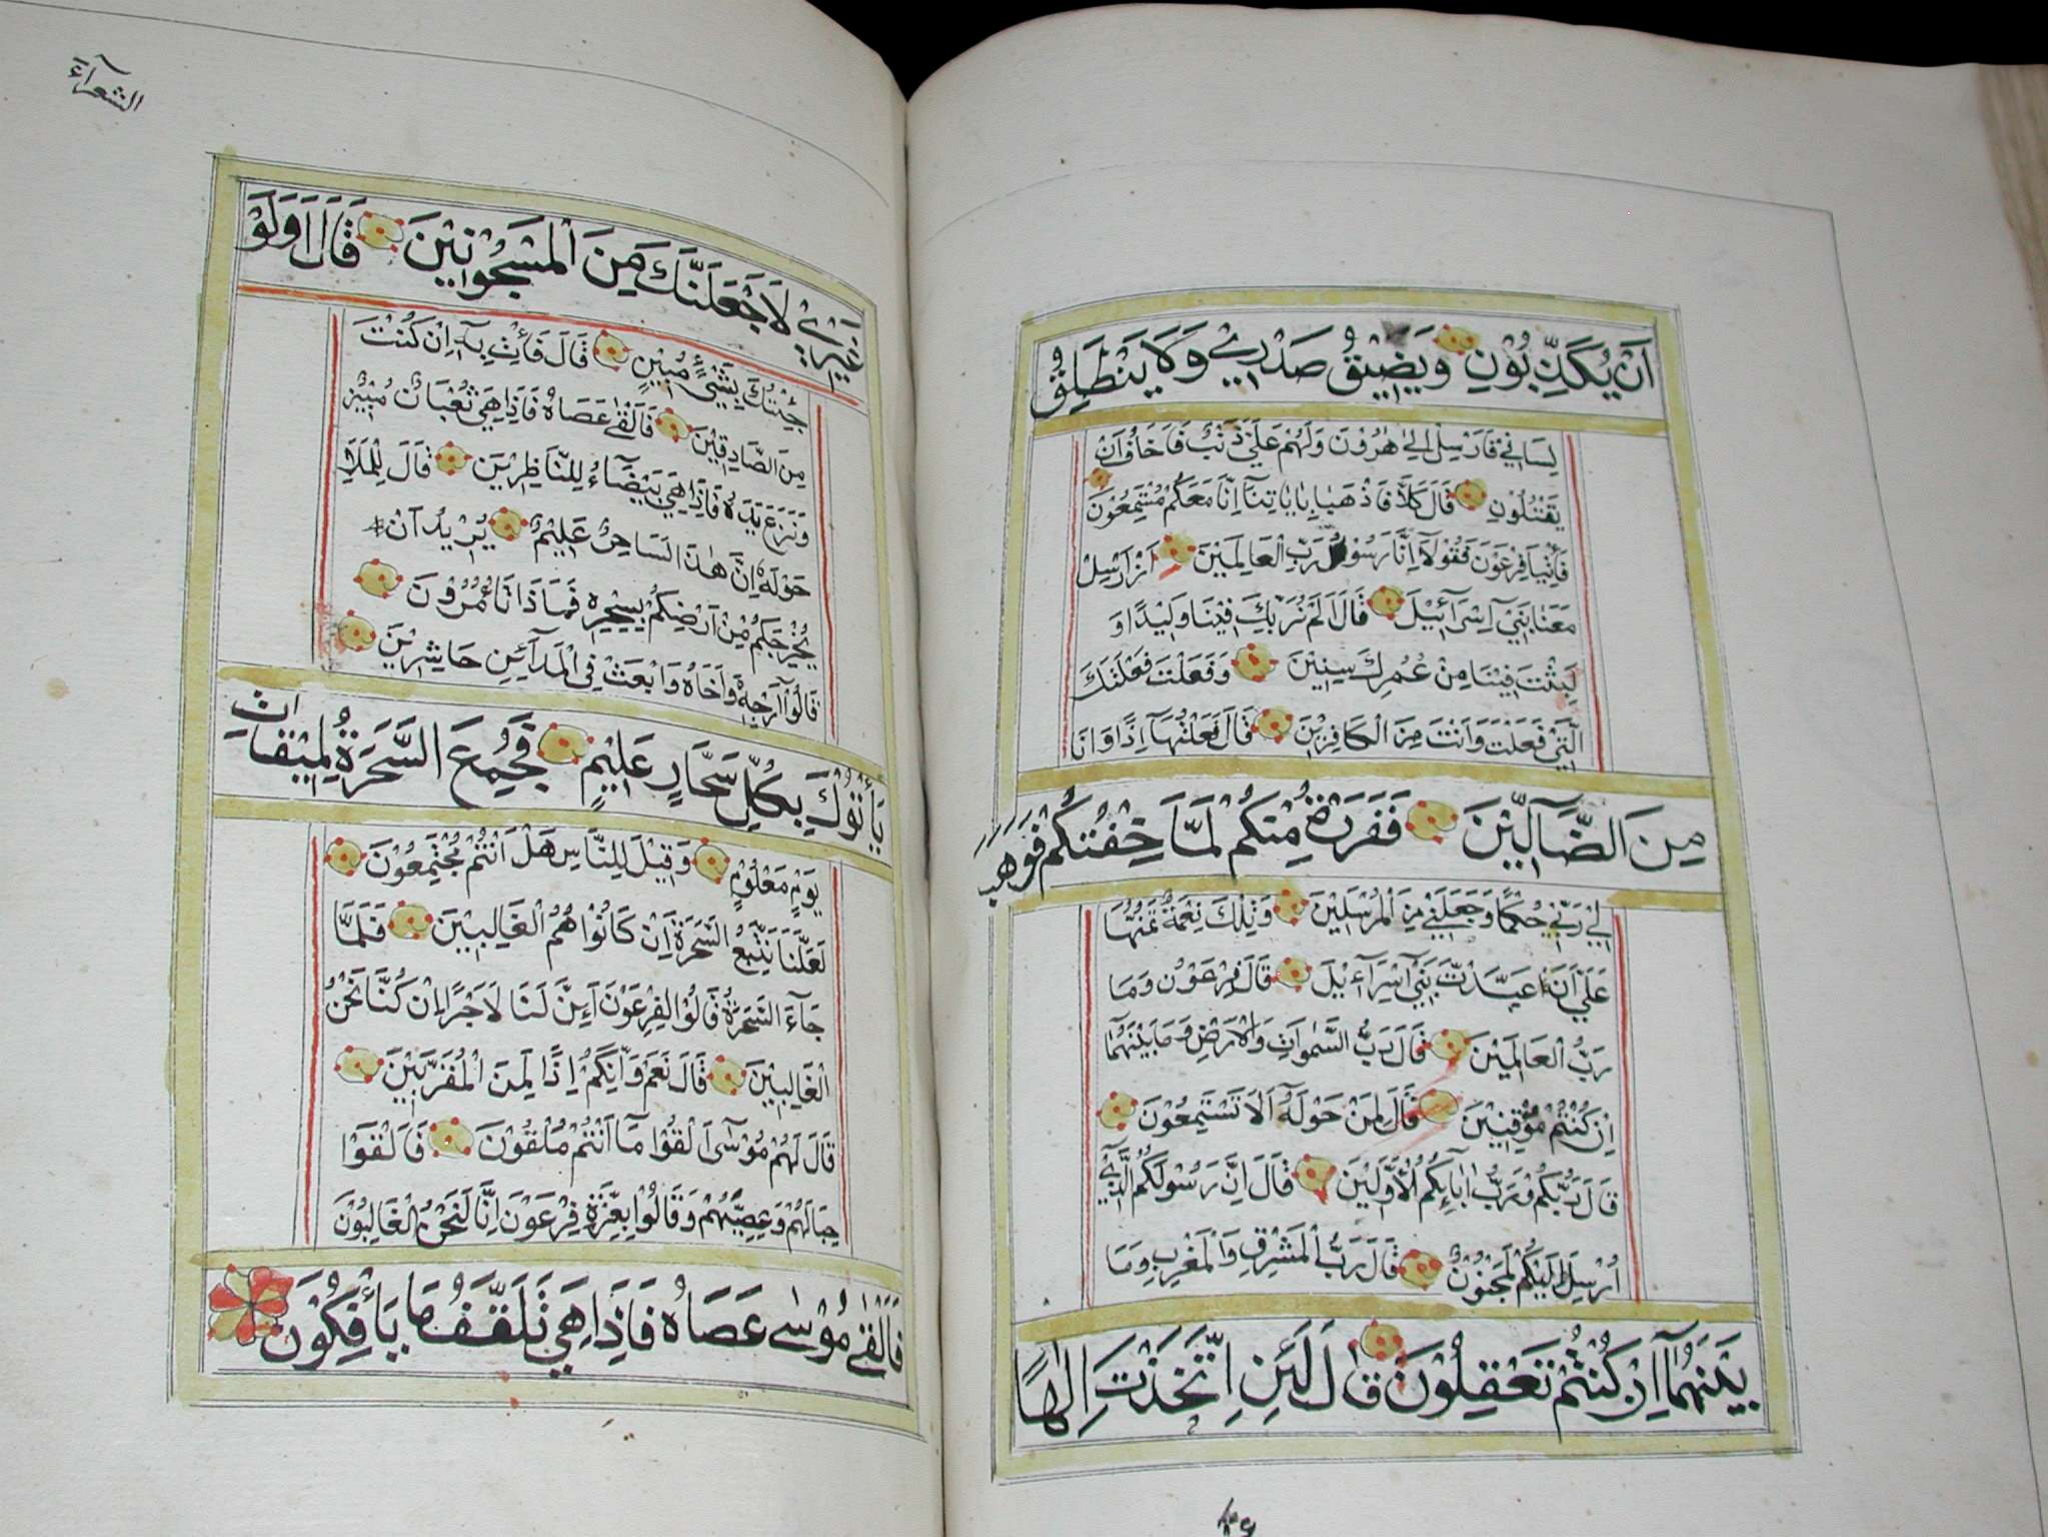 اَنْ يُكَذِّبُوْنِ وَيَضِيْقُ صَدْرِيْ وَلَا يَنْطَلِقُ
لِسَانِيْ فَاَرْسِلْ اِلٰى هٰرُوْنَ وَلَهُمْ عَلَيَّ ذَنْبٌ فَاَخَافُ اَنْ
يَقْتُلُوْنِ قَالَ كَلَّا فَاذْهَبَا بِاٰيَاتِنَآ اِنَّا مَعَكُمْ مُسْتَمِعُوْنَ
فَأْتِيَا فِرْعَوْنَ فَقُوْلَآ اِنَّا رَسُوْلُ رَبِّ الْعَالَمِيْنَ اَنْ اَرْسِلْ
مَعَنَا بَنِيْٓ اِسْرَآئِيْلَ قَالَ اَلَمْ نُرَبِّكَ فِيْنَا وَلِيْدًا وَ
لَبِثْتَ فِيْنَا مِنْ عُمُرِكَ سِنِيْنَ وَفَعَلْتَ فَعْلَتَكَ
الَّتِيْ فَعَلْتَ وَاَنْتَ مِنَ الْكَافِرِيْنَ قَالَ فَعَلْتُهَآ اِذًا وَاَنَا
مِنَ الضَّآلِّيْنَ فَفَرَرْتُ مِنْكُمْ لَمَّا خِفْتُكُمْ فَوَهَبَ
لِيْ رَبِّيْ حُكْمًا وَجَعَلَنِيْ مِنَ الْمُرْسَلِيْنَ وَتِلْكَ نِعْمَةٌ تَمُنُّهَا
عَلَيَّ اَنْ عَبَّدْتَ بَنِيْٓ اِسْرَآءِيْلَ قَالَ فِرْعَوْنُ وَمَا
رَبُّ الْعَالَمِيْنَ قَالَ رَبُّ السَّمٰوَاتِ وَالْاَرْضِ وَمَا بَيْنَهُمَآ
اِنْ كُنْتُمْ مُوْقِنِيْنَ قَالَ لِمَنْ حَوْلَهُ اَلَا تَسْتَمِعُوْنَ
قَالَ رَبُّكُمْ وَرَبُّ اٰبَآئِكُمُ الْاَوَّلِيْنَ قَالَ اِنَّ رَسُوْلَكُمُ الَّذِيْٓ
اُرْسِلَ اِلَيْكُمْ لَمَجْنُوْنٌ قَالَ رَبُّ الْمَشْرِقِ وَالْمَغْرِبِ وَمَا
بَيْنَهُمَآ اِنْ كُنْتُمْ تَعْقِلُوْنَ قَالَ لَئِنِ اتَّخَذْتَ اِلٰهًا
الشعرآء
غَيْرِيْ لَاَجْعَلَنَّكَ مِنَ الْمَسْجُوْنِيْنَ قَالَ اَوَلَوْ
جِئْتُكَ بِشَيْءٍ مُبِيْنٍ قَالَ فَأْتِ بِهٓ اِنْ كُنْتَ
مِنَ الصَّادِقِيْنَ فَاَلْقٰى عَصَاهُ فَاِذَا هِيَ ثُعْبَانٌ مُبِيْنٌ
وَنَزَعَ يَدَهُ فَاِذَا هِيَ بَيْضَآءُ لِلنَّاظِرِيْنَ قَالَ لِلْمَلَاِ
حَوْلَهُٓ اِنَّ هٰذَا لَسَاحِرٌ عَلِيْمٌ يُرِيْدُ اَنْ
يُخْرِجَكُمْ مِنْ اَرْضِكُمْ بِسِحْرِهِ فَمَاذَا تَأْمُرُوْنَ
قَالُوْٓا اَرْجِهْ وَاَخَاهُ وَابْعَثْ فِى الْمَدَآئِنِ حَاشِرِيْنَ
يَأْتُوْكَ بِكُلِّ سَحَّارٍ عَلِيْمٍ فَجُمِعَ السَّحَرَةُ لِمِيْقَاتِ
يَوْمٍ مَعْلُوْمٍ وَقِيْلَ لِلنَّاسِ هَلْ اَنْتُمْ مُجْتَمِعُوْنَ
لَعَلَّنَا نَتَّبِعُ السَّحَرَةَ اِنْ كَانُوْا هُمُ الْغَالِبِيْنَ فَلَمَّا
جَآءَ السَّحَرَةُ قَالُوْا لِفِرْعَوْنَ اَئِنَّ لَنَا لَاَجْرًا اِنْ كُنَّا نَحْنُ
الْغَالِبِيْنَ قَالَ نَعَمْ وَاِنَّكُمْ اِذًا لَمِنَ الْمُقَرَّبِيْنَ
قَالَ لَهُمْ مُوْسٰٓى اَلْقُوْا مَآ اَنْتُمْ مُلْقُوْنَ فَاَلْقَوْا
حِبَالَهُمْ وَعِصِيَّهُمْ وَقَالُوْا بِعِزَّةِ فِرْعَوْنَ اِنَّا لَنَحْنُ الْغَالِبُوْنَ
فَاَلْقٰى مُوْسٰى عَصَاهُ فَاِذَا هِيَ تَلْقَفُ مَا يَأْفِكُوْنَ